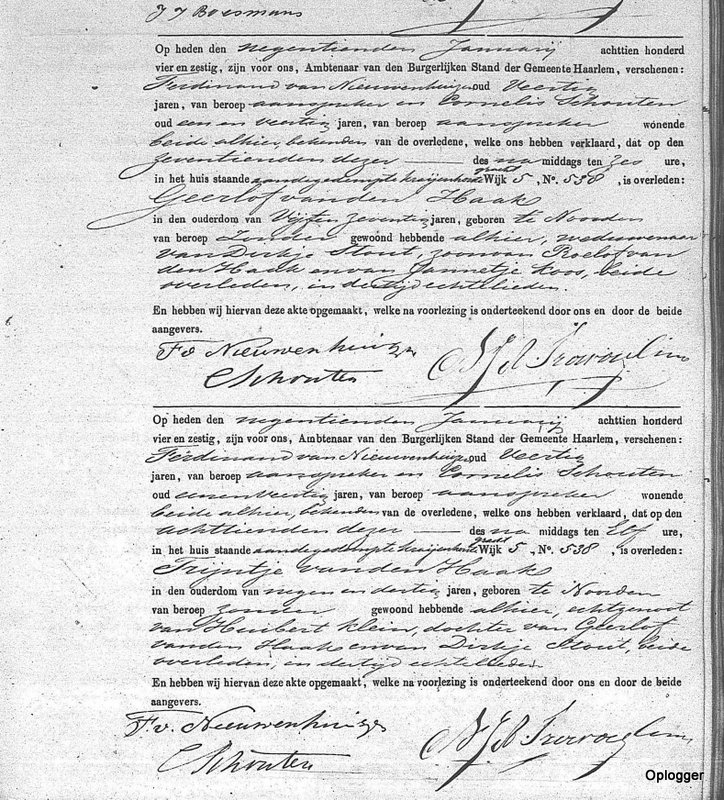 J J Boesmans
Op heden den negentienden Januarij achttien honderd
vier en zestig, zijn voor ons, Ambtenaar van den Burgerlijken Stand der Gemeente Haarlem, verschenen:
Ferdinand van Nieuwenhuizen oud Veertig
jaren, van beroep aanspreker en Cornelis Schouten
oud een en veertig jaren, van beroep aanspreker wonende
beide alhier, bekenden van de overledene, welke ons hebben verklaard, dat op den
zeventienden dezer des na middags ten zes ure,
in het huis staande aan de gedempte gracht Wijk 5, No. 538, is overleden:
Geerlof van den Haak
in den ouderdom van Vijf en zeventig jaren, geboren te Noorden
van beroep Zonder gewoond hebbende alhier, weduwenaar
van Dirkje Stout, zoon van Roelof van
den Haak en van Jannetje Koos, beide
overleden, in der tijd echtelieden.
En hebben wij hiervan deze akte opgemaakt, welke na voorlezing is onderteekend door ons en door de beide
aangevers.
F v Nieuwenhuizen
C Schouten
Op heden den negentienden Januarij achttien honderd
vier en zestig, zijn voor ons, Ambtenaar van den Burgerlijken Stand der Gemeente Haarlem, verschenen:
Ferdinand van Nieuwenhuizen oud Veertig
jaren, van beroep aanspreker en Cornelis Schouten
oud een en veertig jaren, van beroep aanspreker wonende
beide alhier, bekenden van de overledene, welke ons hebben verklaard, dat op den
achttienden dezer des na middags ten Elf ure,
in het huis staande aan de gedempte gracht Wijk 5, No. 538, is overleden:
Trijntje van den Haak
in den ouderdom van negen en dertig jaren, geboren te Noorden
van beroep zonder gewoond hebbende alhier, echtgenoot
van Huibert Klein, dochter van Geerlof
van den Haak en van Dirkje Stout, beide
overleden, in der tijd echtelieden.
En hebben wij hiervan deze akte opgemaakt, welke na voorlezing is onderteekend door ons en door de beide
aangevers.
F. v. Nieuwenhuizen
C Schouten
Oplogger